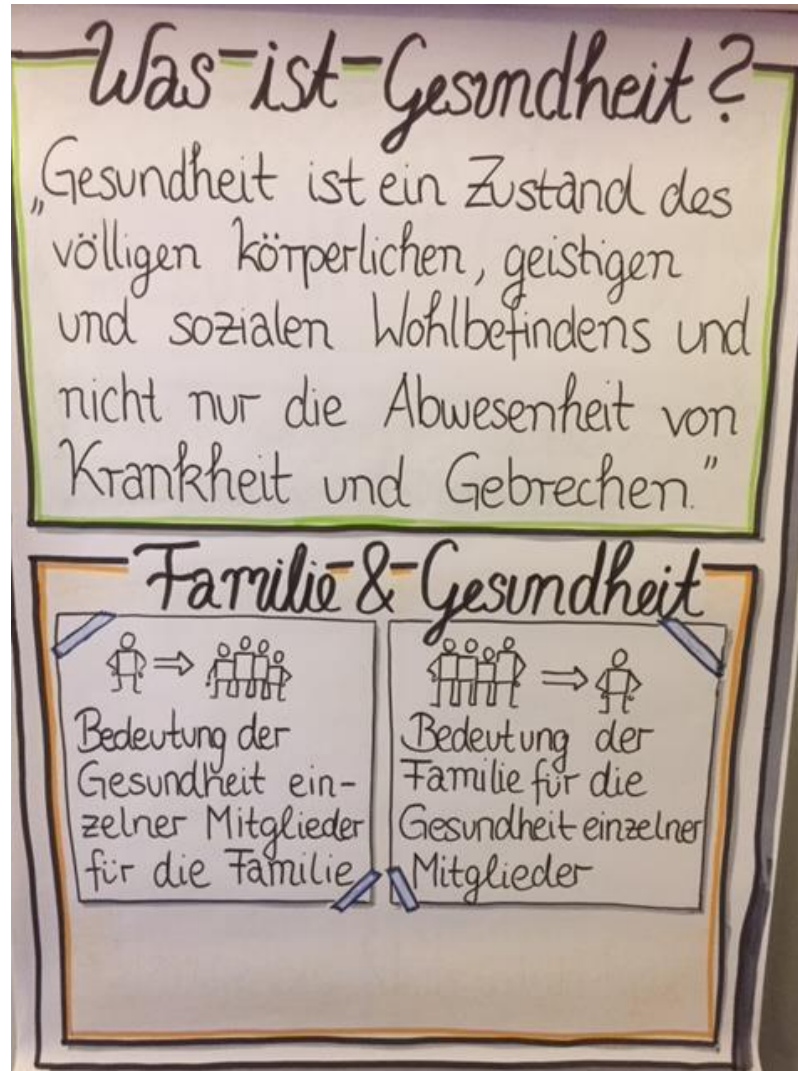 Was ist Gesundheit?
„Gesundheit ist ein Zustand des
völligen körperlichen, geistigen
und sozialen Wohlbefindens und
nicht nur die Abwesenheit von
Krankheit und Gebrechen."
Familie & Gesundheit
Bedeutung der
Gesundheit ein-
zelner Mitglieder
für die Familie
Bedeutung der
Familie für die
Gesundheit einzelner
Mitglieder